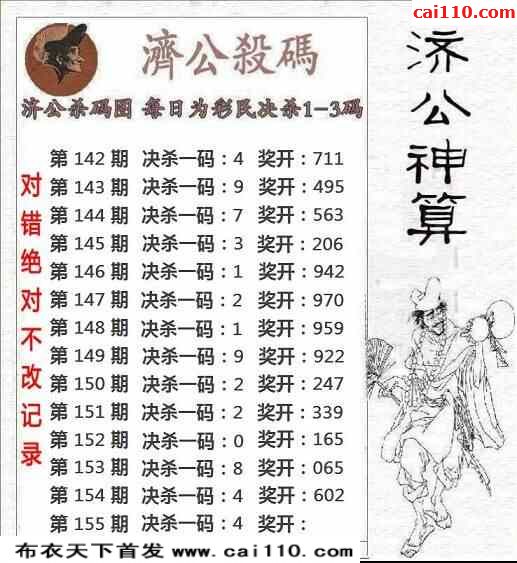 cai110.com
濟公殺碼
济公杀码图 每日为彩民决杀1-3码
第 142 期 决杀一码：4 奖开：711
第 143 期 决杀一码：9 奖开：495
第 144 期 决杀一码：7 奖开：563
第 145 期 决杀一码：3 奖开：206
第 146 期 决杀一码：1 奖开：942
第 147 期 决杀一码：2 奖开：970
第 148 期 决杀一码：1 奖开：959
第 149 期 决杀一码：9 奖开：922
第 150 期 决杀一码：2 奖开：247
第 151 期 决杀一码：2 奖开：339
第 152 期 决杀一码：0 奖开：165
第 153 期 决杀一码：8 奖开：065
第 154 期 决杀一码：4 奖开：602
第 155 期 决杀一码：4 奖开：
对错绝对不改记录
济公神算
布衣天下首发 www.cai110.com